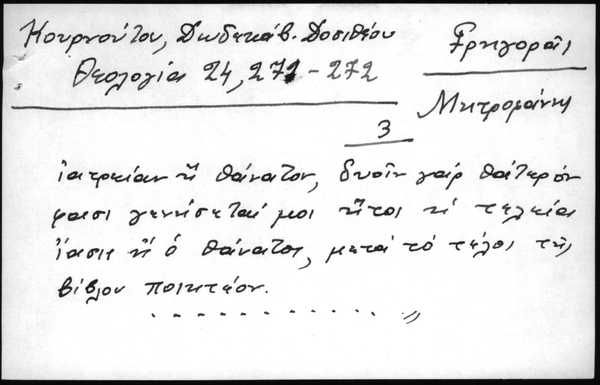 Κουρνούτου, Δωδεκάβ. Δοσιθέου
Θεολογία 24, 271-272
Γρηγορᾶς
Μητροφάνης
3
ἰατρείαν ἢ θάνατον, δυοῖν γάρ θάτερόν
φασι γεννήσεταί μοι ἤτοι ἡ τελεία
ἴασις ἢ ὁ θάνατος, μετά τό τέλος τῆς
βίβλου ποιητέον.